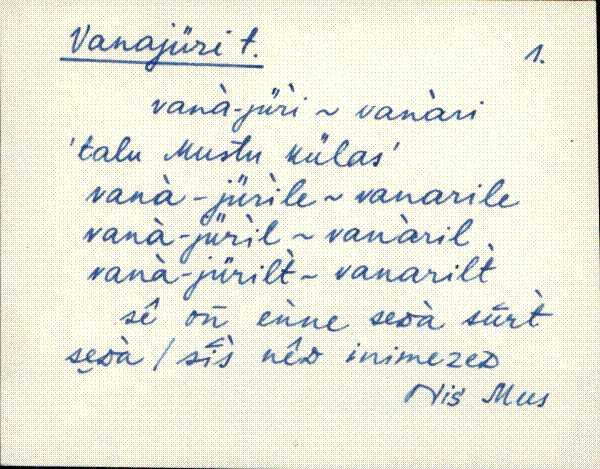 Vanajüri t.
1.
vanà-jüri ~ vanàri
'talu Mustu külas'
vanà-jürìle ~ vanarile
vanà-jürìl ~ vanàril
vanà-jürilt̀ ~ vanarilt̀
sê on̄ eǹne seᴅà sūrt̀
seᴅà / sīs̀ nêᴅ inimezeᴅ
Mus